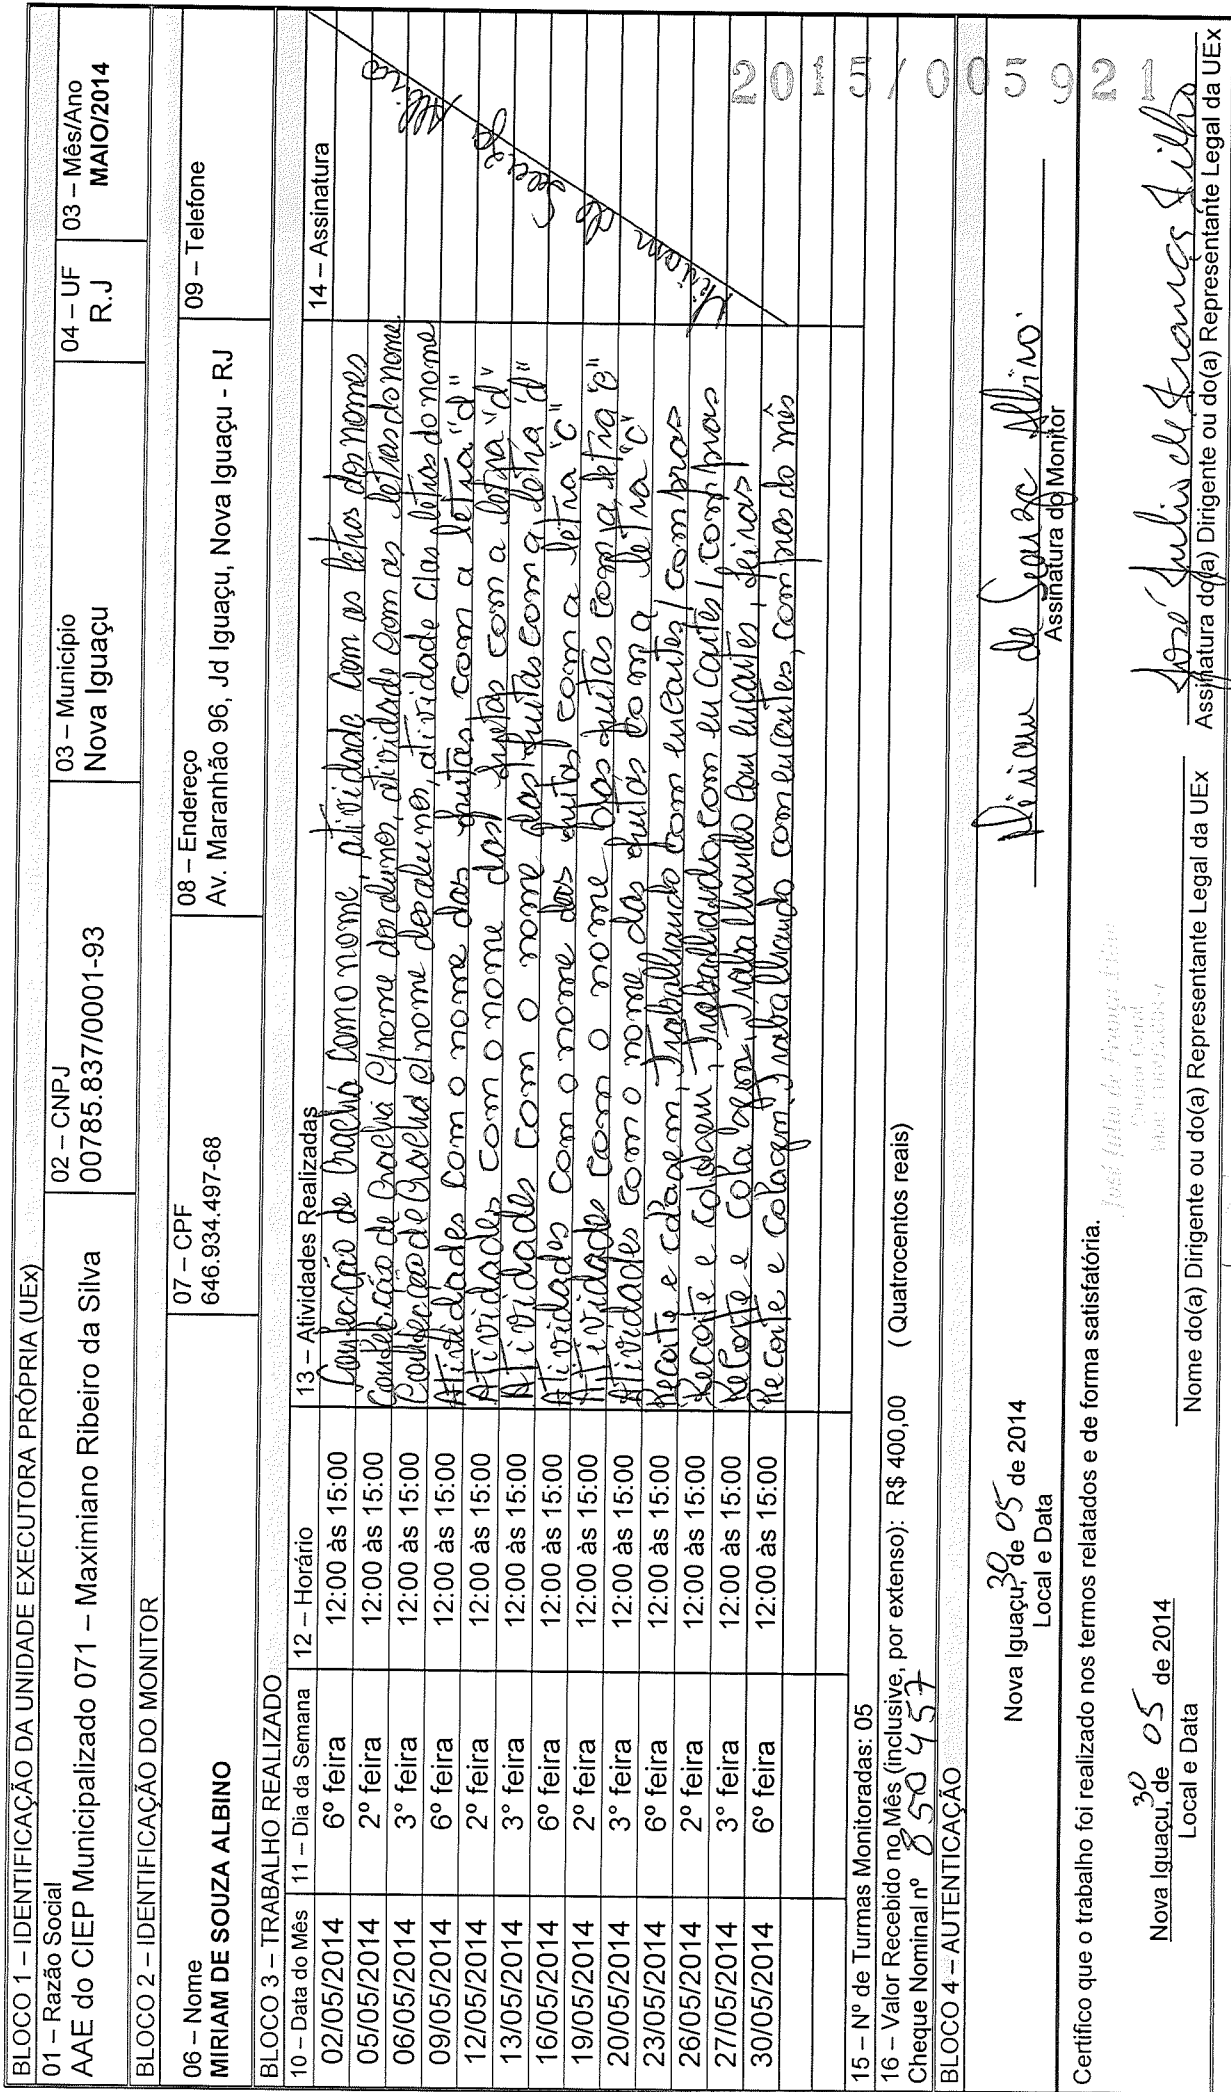 BLOCO 1 – IDENTIFICAÇÃO DA UNIDADE EXECUTORA PRÓPRIA (UEx)
01 – Razão Social
AAE do CIEP Municipalizado 071 – Maximiano Ribeiro da Silva
02 – CNPJ
00785.837/0001-93
03 – Município
Nova Iguaçu
04 – UF
R.J
03 – Mês/Ano
MAIO/2014
BLOCO 2 – IDENTIFICAÇÃO DO MONITOR
06 – Nome
MIRIAM DE SOUZA ALBINO
07 – CPF
646.934.497-68
08 – Endereço
Av. Maranhão 96, Jd Iguaçu, Nova Iguaçu - RJ
09 – Telefone
BLOCO 3 – TRABALHO REALIZADO
10 – Data do Mês 11 – Dia da Semana 12 – Horário 13 – Atividades Realizadas 14 – Assinatura
02/05/2014 6º feira 12:00 às 15:00 Confecção de crachá com o nome, atividade com as letras dos nomes
05/05/2014 2º feira 12:00 às 15:00 Confecção de crachá c/nome dos alunos, atividade com as letras do nome
06/05/2014 3° feira 12:00 às 15:00 Confecção de crachá c/nome dos alunos, atividade das letras do nome
09/05/2014 6º feira 12:00 às 15:00 Atividades com o nome das frutas com a letra "d"
12/05/2014 2º feira 12:00 às 15:00 Atividades com o nome das frutas com a letra "d"
13/05/2014 3° feira 12:00 às 15:00 Atividades com o nome das frutas com a letra "d"
16/05/2014 6º feira 12:00 às 15:00 Atividades com o nome das frutas com a letra "c"
19/05/2014 2º feira 12:00 às 15:00 Atividades com o nome das frutas com a letra "c"
20/05/2014 3° feira 12:00 às 15:00 Atividades com o nome das frutas com a letra "c"
23/05/2014 6º feira 12:00 às 15:00 Recorte e colagem, Trabalhando com encartes/ compras
26/05/2014 2º feira 12:00 às 15:00 Recorte e colagem, Trabalhando com encartes/ compras
27/05/2014 3° feira 12:00 às 15:00 Recorte e colagem, Trabalhando com encartes, feiras
30/05/2014 6º feira 12:00 às 15:00 Recorte e colagem, Trabalhando com encartes, compras do mês
Miriam de Souza Albino
15 – Nº de Turmas Monitoradas: 05
16 – Valor Recebido no Mês (inclusive, por extenso): R$ 400,00 ( Quatrocentos reais)
Cheque Nominal nº 850457
2015/005921
BLOCO 4 – AUTENTICAÇÃO
Nova Iguaçu, 30 de 05 de 2014
Local e Data
Miriam de Souza Albino
Assinatura do Monitor
Certifico que o trabalho foi realizado nos termos relatados e de forma satisfatória.
Nova Iguaçu, 30 de 05 de 2014
Local e Data
José Julio de França Filho
Nome do(a) Dirigente ou do(a) Representante Legal da UEx
José Julio de França Filho
Assinatura do(a) Dirigente ou do(a) Representante Legal da UEx